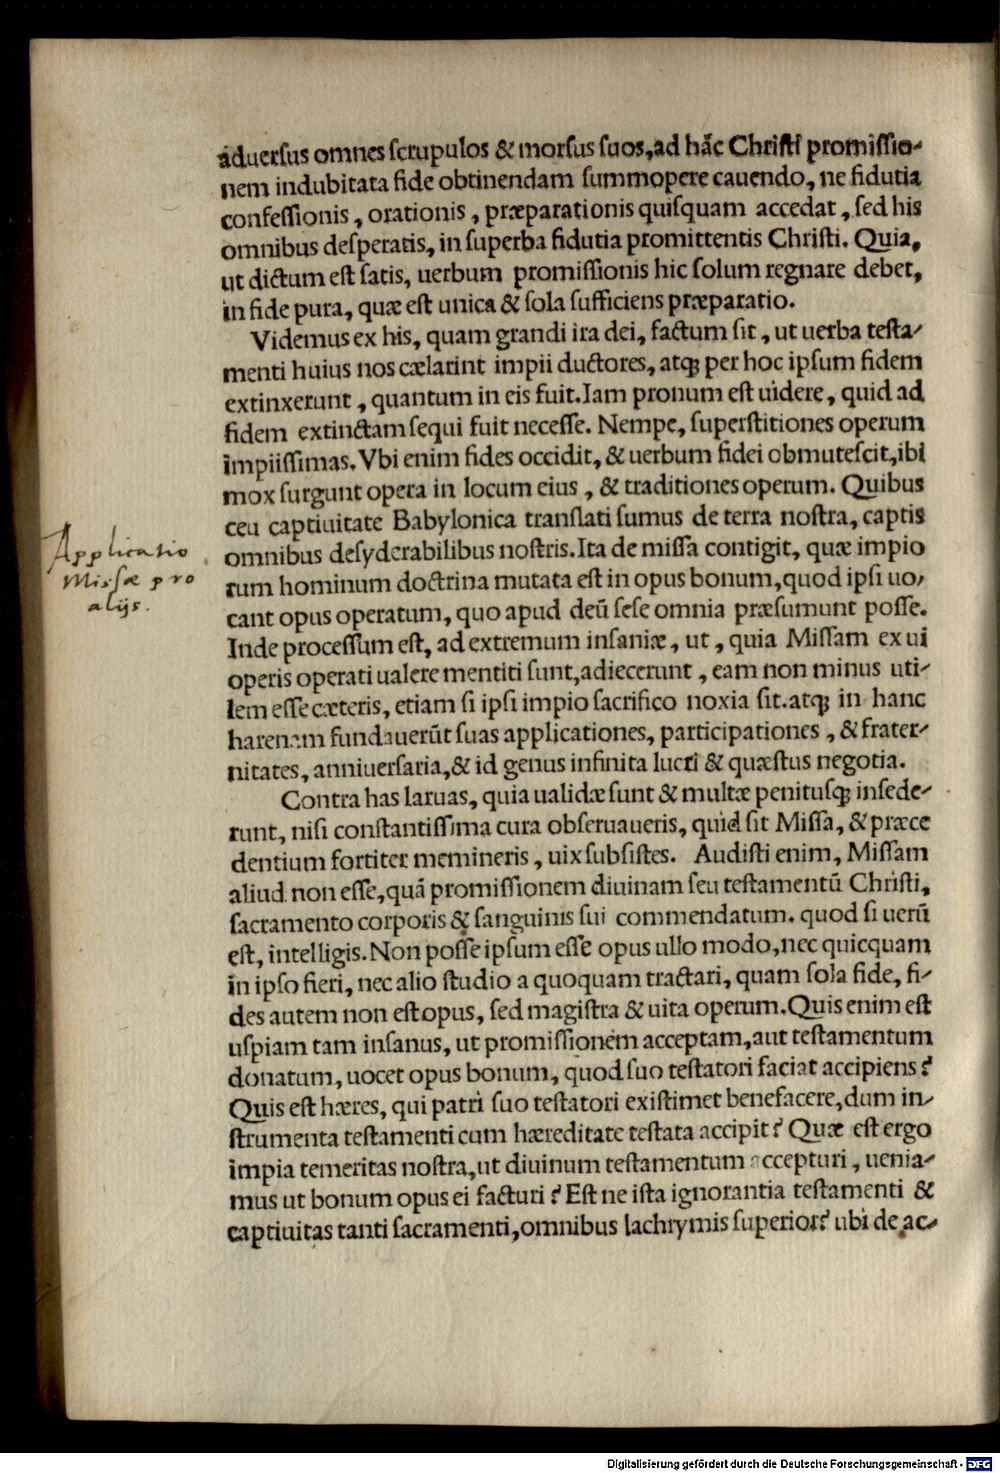 aduersus omnes scrupulos & morsus suos, ad hãc Christi promissio-
nem indubitata fide obtinendam summopere cauendo, ne fidutia
confessionis, orationis, præparationis quisquam accedat, sed his
omnibus desperatis, in superba fidutia promittentis Christi. Quia,
ut dictum est satis, uerbum promissionis hic solum regnare debet,
in fide pura, quæ est unica & sola sufficiens præparatio.
Videmus ex his, quam grandi ira dei, factum sit, ut uerba testa-
menti huius nos cælarint impii ductores, atq; per hoc ipsum fidem
extinxerunt, quantum in eis fuit. Iam pronum est uidere, quid ad
fidem extinctam sequi fuit necesse. Nempe, superstitiones operum
impiissimas. Vbi enim fides occidit, & uerbum fidei obmutescit, ibi
mox surgunt opera in locum eius, & traditiones operum. Quibus
ceu captiuitate Babylonica translati sumus de terra nostra, captis
omnibus desyderabilibus nostris. Ita de missa contigit, quæ impio
rum hominum doctrina mutata est in opus bonum, quod ipsi uo-
cant opus operatum, quo apud deũ sese omnia præsumunt posse.
Inde processum est, ad extremum insaniæ, ut, quia Missam ex ui
operis operati ualere mentiti sunt, adiecerunt, eam non minus uti-
lem esse cæteris, etiam si ipsi impio sacrifico noxia sit. atq; in hanc
harenam fundauerũt suas applicationes, participationes, & frater-
nitates, anniuersaria, & id genus infinita lucri & quæstus negotia.
Contra has laruas, quia ualidæ sunt & multæ penitusq; insede-
runt, nisi constantissima cura obseruaueris, quid sit Missa, & præce
dentium fortiter memineris, uix subsistes. Audisti enim, Missam
aliud non esse, quã promissionem diuinam seu testamentũ Christi,
sacramento corporis & sanguinis sui commendatum. quod si uerũ
est, intelligis. Non posse ipsum esse opus ullo modo, nec quicquam
in ipso fieri, nec alio studio a quoquam tractari, quam sola fide, fi-
des autem non est opus, sed magistra & uita operum. Quis enim est
uspiam tam insanus, ut promissionem acceptam, aut testamentum
donatum, uocet opus bonum, quod suo testatori faciat accipiens?
Quis est hæres, qui patri suo testatori existimet benefacere, dum in-
strumenta testamenti cum hæreditate testata accipit? Quæ est ergo
impia temeritas nostra, ut diuinum testamentum accepturi, uenia-
mus ut bonum opus ei facturi? Est ne ista ignorantia testamenti &
captiuitas tanti sacramenti, omnibus lachrymis superior? ubi de ac-
Applicatio
Missæ pro
alijs.
Digitalisierung gefördert durch die Deutsche Forschungsgemeinschaft - DFG